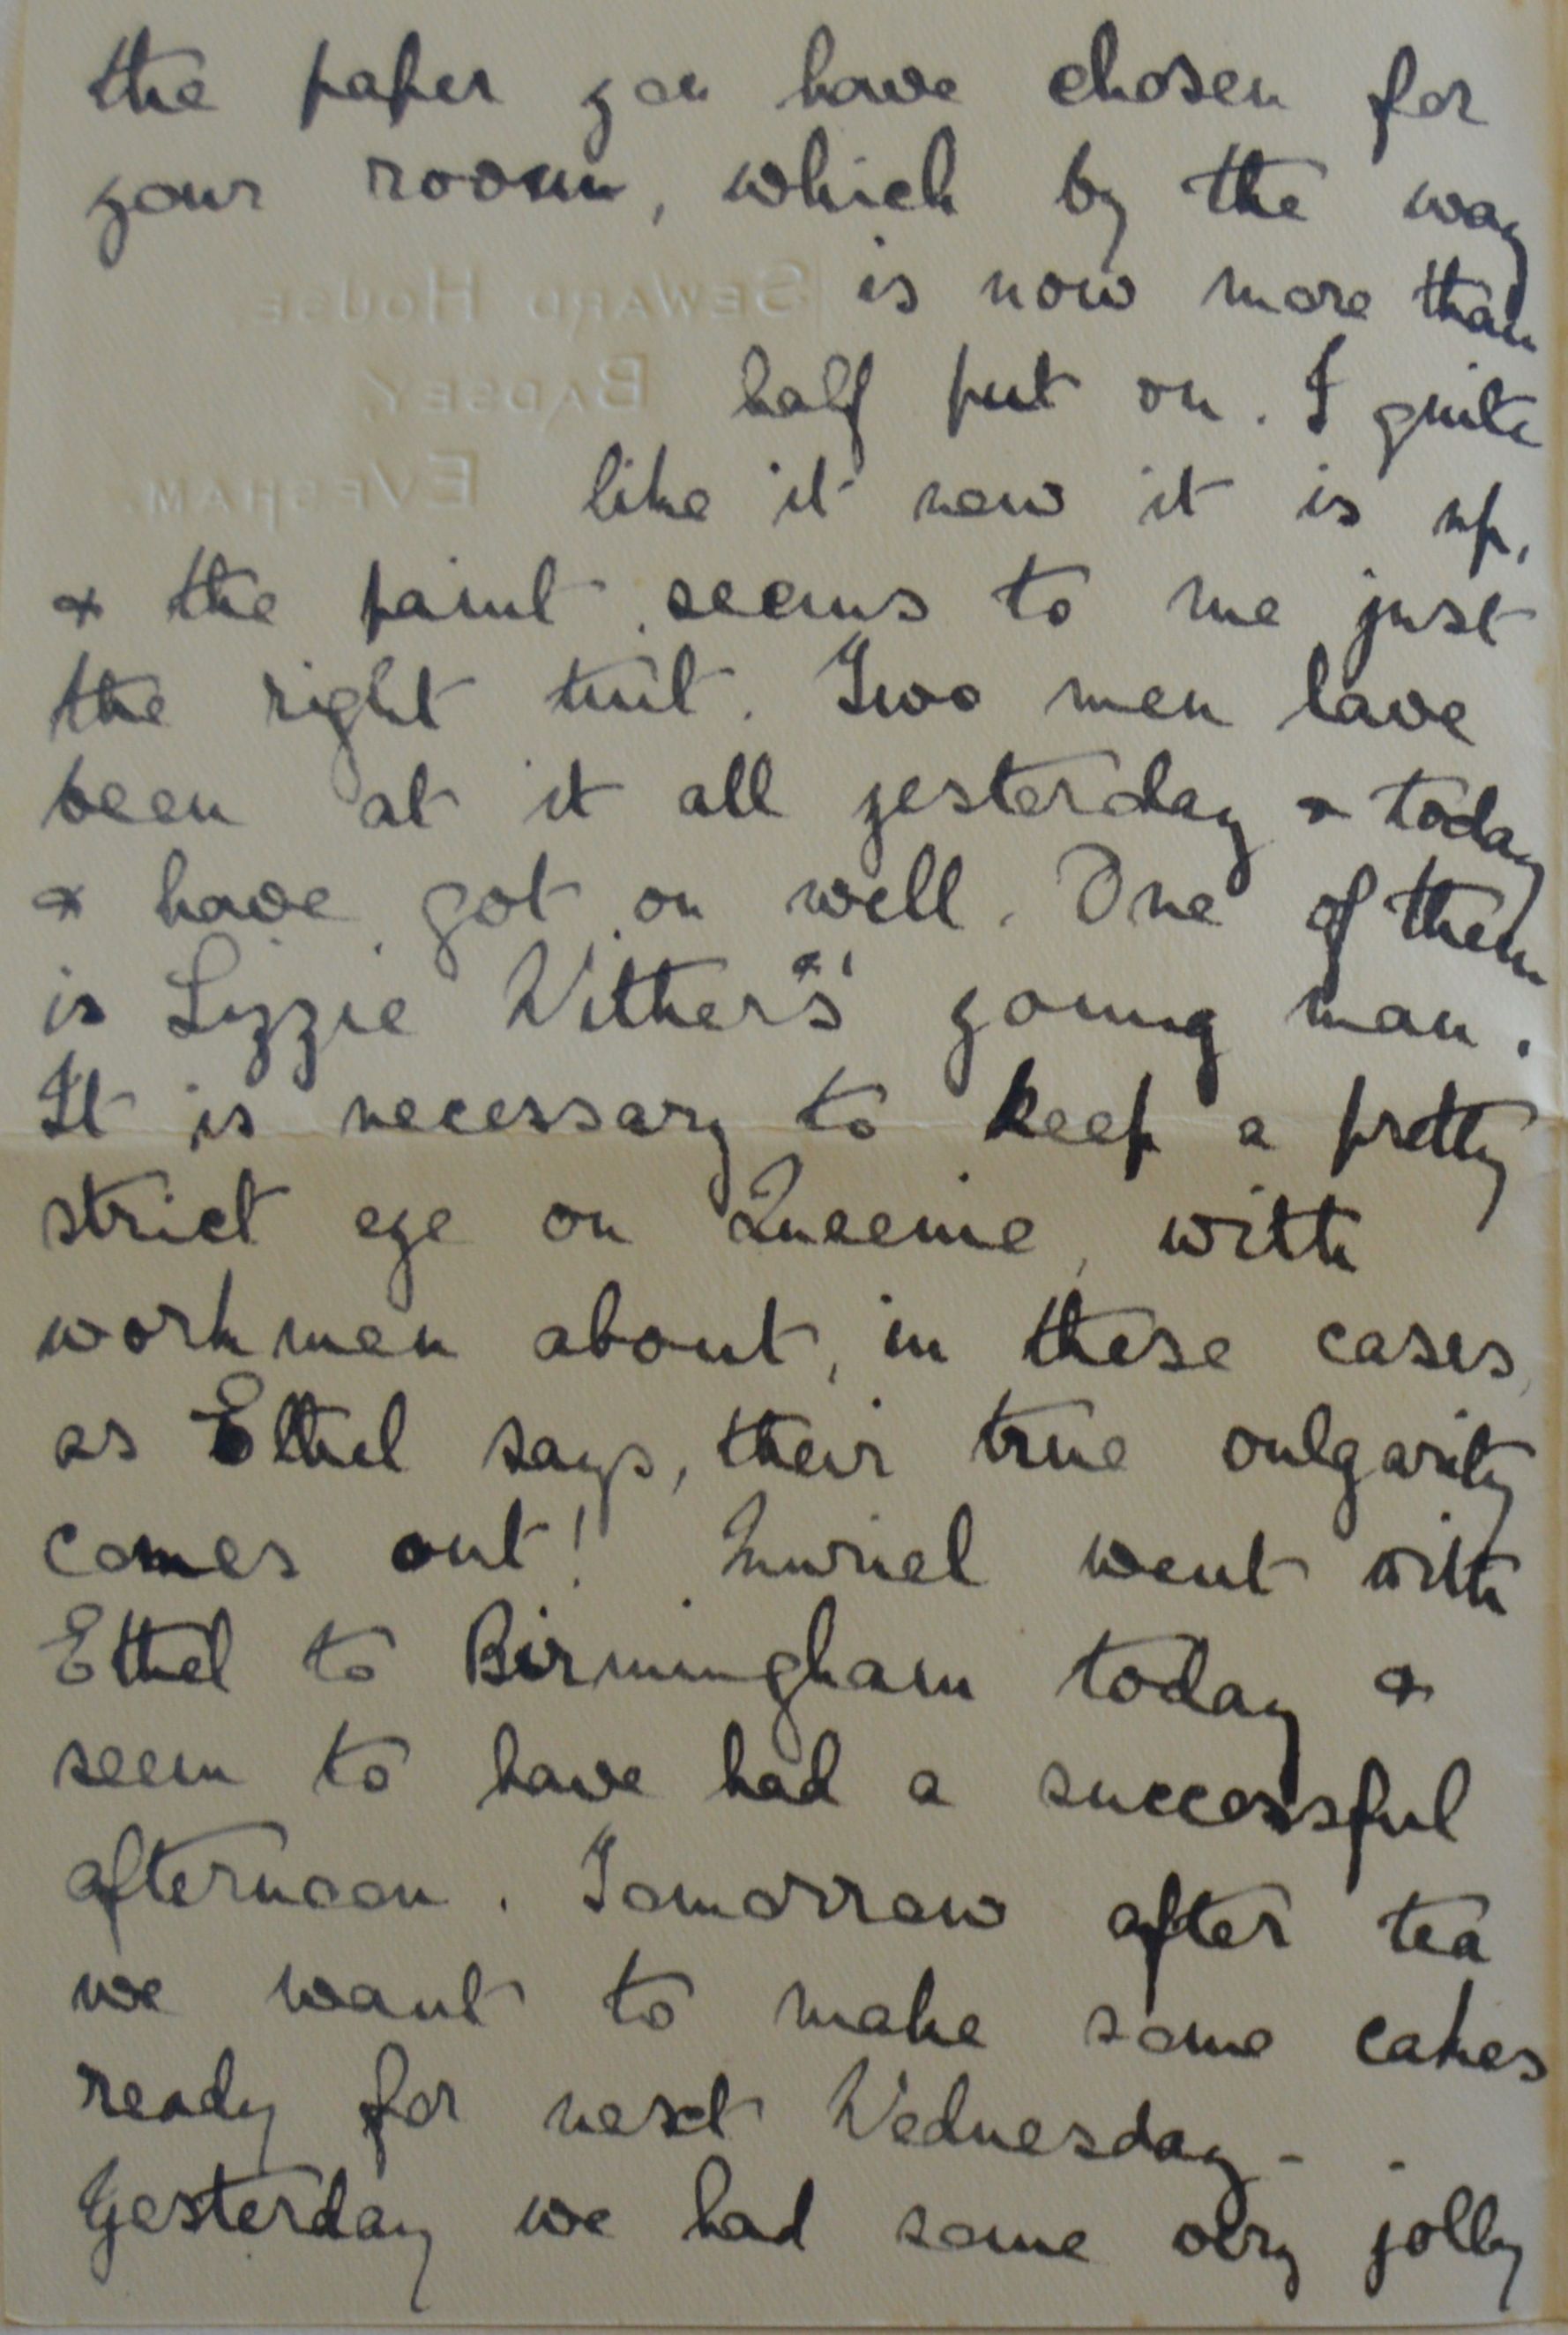 the paper you have chosen for
your room, which by the way
SEWARD HOUSE,
is now more than
BADSEY,
half put on. I quite
EVESHAM.
like it now it is up,
& the paint seems to me just
the right tint. Two men have
been at it all yesterday & today
& have got on well. One of them
is Lizzie Withers' young man.
It is necessary to keep a pretty
strict eye on Queenie, with
workmen about, in these cases,
as Ethel says, their true vulgarity
comes out! Muriel went with
Ethel to Birmingham today &
seem to have had a successful
afternoon. Tomorrow after tea
we want to make some cakes
ready for next Wednesday -
Yesterday we had some very jolly